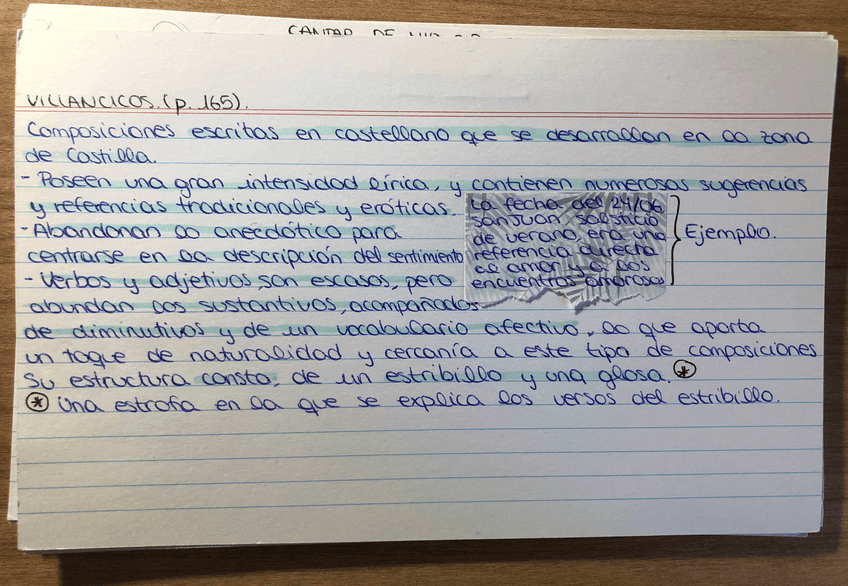 CANTAR DE
VILLANCICOS. (p. 165).
Composiciones escritas en castellano que se desarrollan en la zona
de Castilla.
- Poseen una gran intensidad lírica, y contienen numerosas sugerencias
y referencias tradicionales y eróticas.
- Abandonan lo anecdótico para
centrarse en la descripción del sentimiento
- Verbos y adjetivos son escasos, pero
abundan los sustantivos, acompañados
de diminutivos y de un vocabulario afectivo, lo que aporta
un toque de naturalidad y cercanía a este tipo de composiciones
Su estructura consta, de un estribillo y una glosa. *
* Una estrofa en la que se explica los versos del estribillo.
La fecha del 24/06
San Juan, solsticio
de verano era una
referencia directa
al amor y a los
encuentros amorosos
Ejemplo.